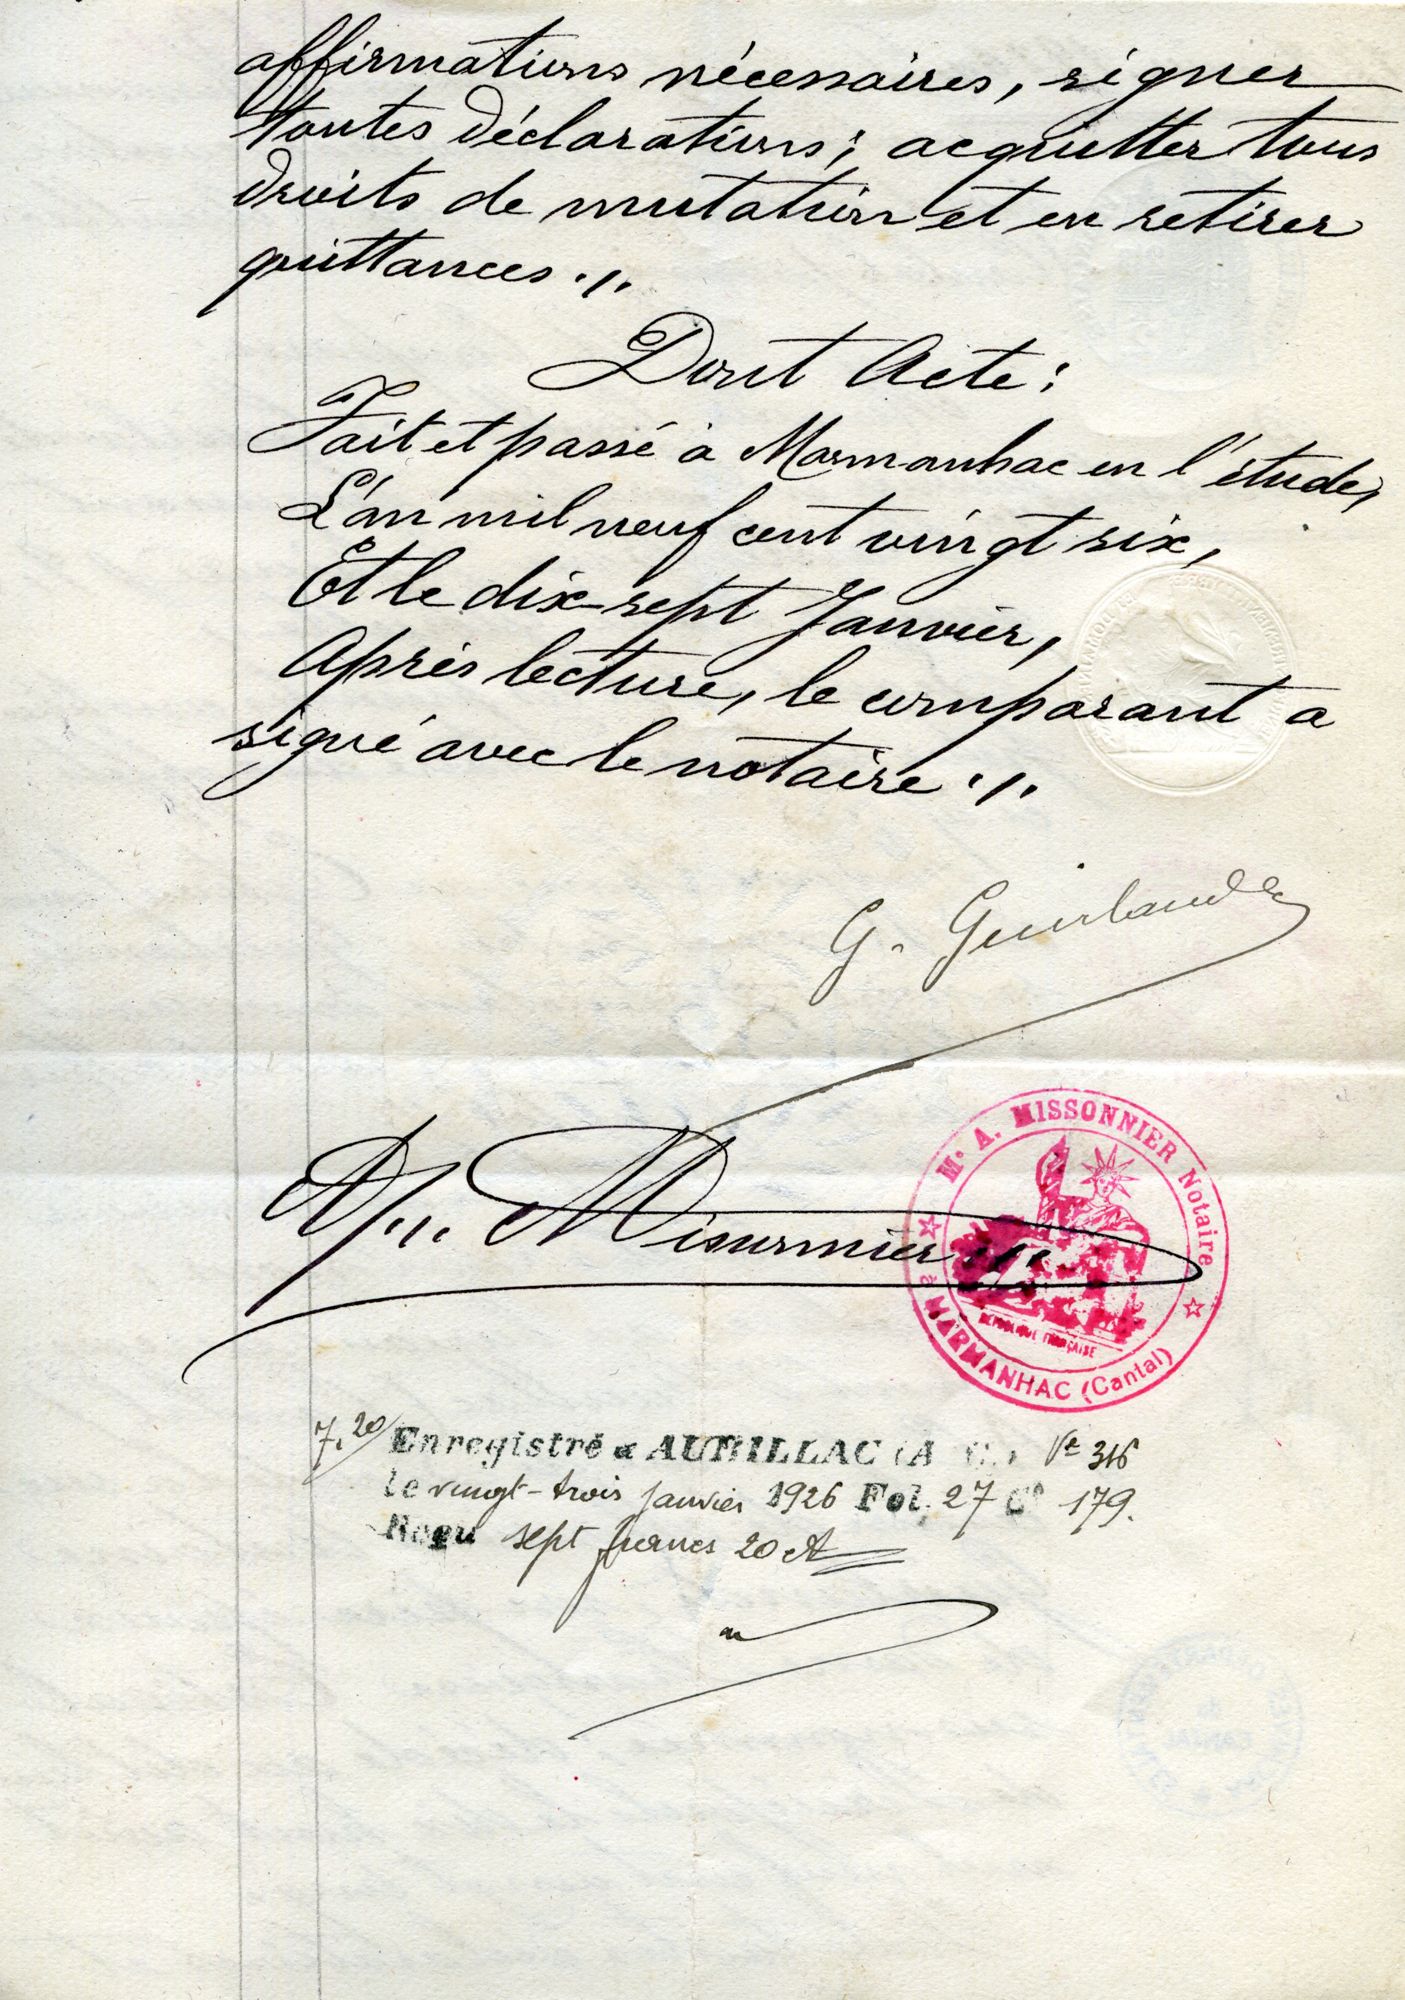 affirmations nécessaires, signer
toutes déclarations; acquitter tous
droits de mutation et en retirer
quittances ./.
Dont Acte:
Fait et passé à Marmanhac en l'étude,
L'an mil neuf cent vingt six,
Et le dix-sept Janvier,
Après lecture, le comparant a
signé avec le notaire ./.
G. Guirlande
A. Missonnier
Me A. MISSONNIER Notaire
RÉPUBLIQUE FRANÇAISE
à MARMANHAC (Cantal)
7.20 Enregistré à AURILLAC (A. C.) Ve 316
le vingt-trois janvier 1926 Fol. 27 Ce 179.
Reçu sept francs 20 ct